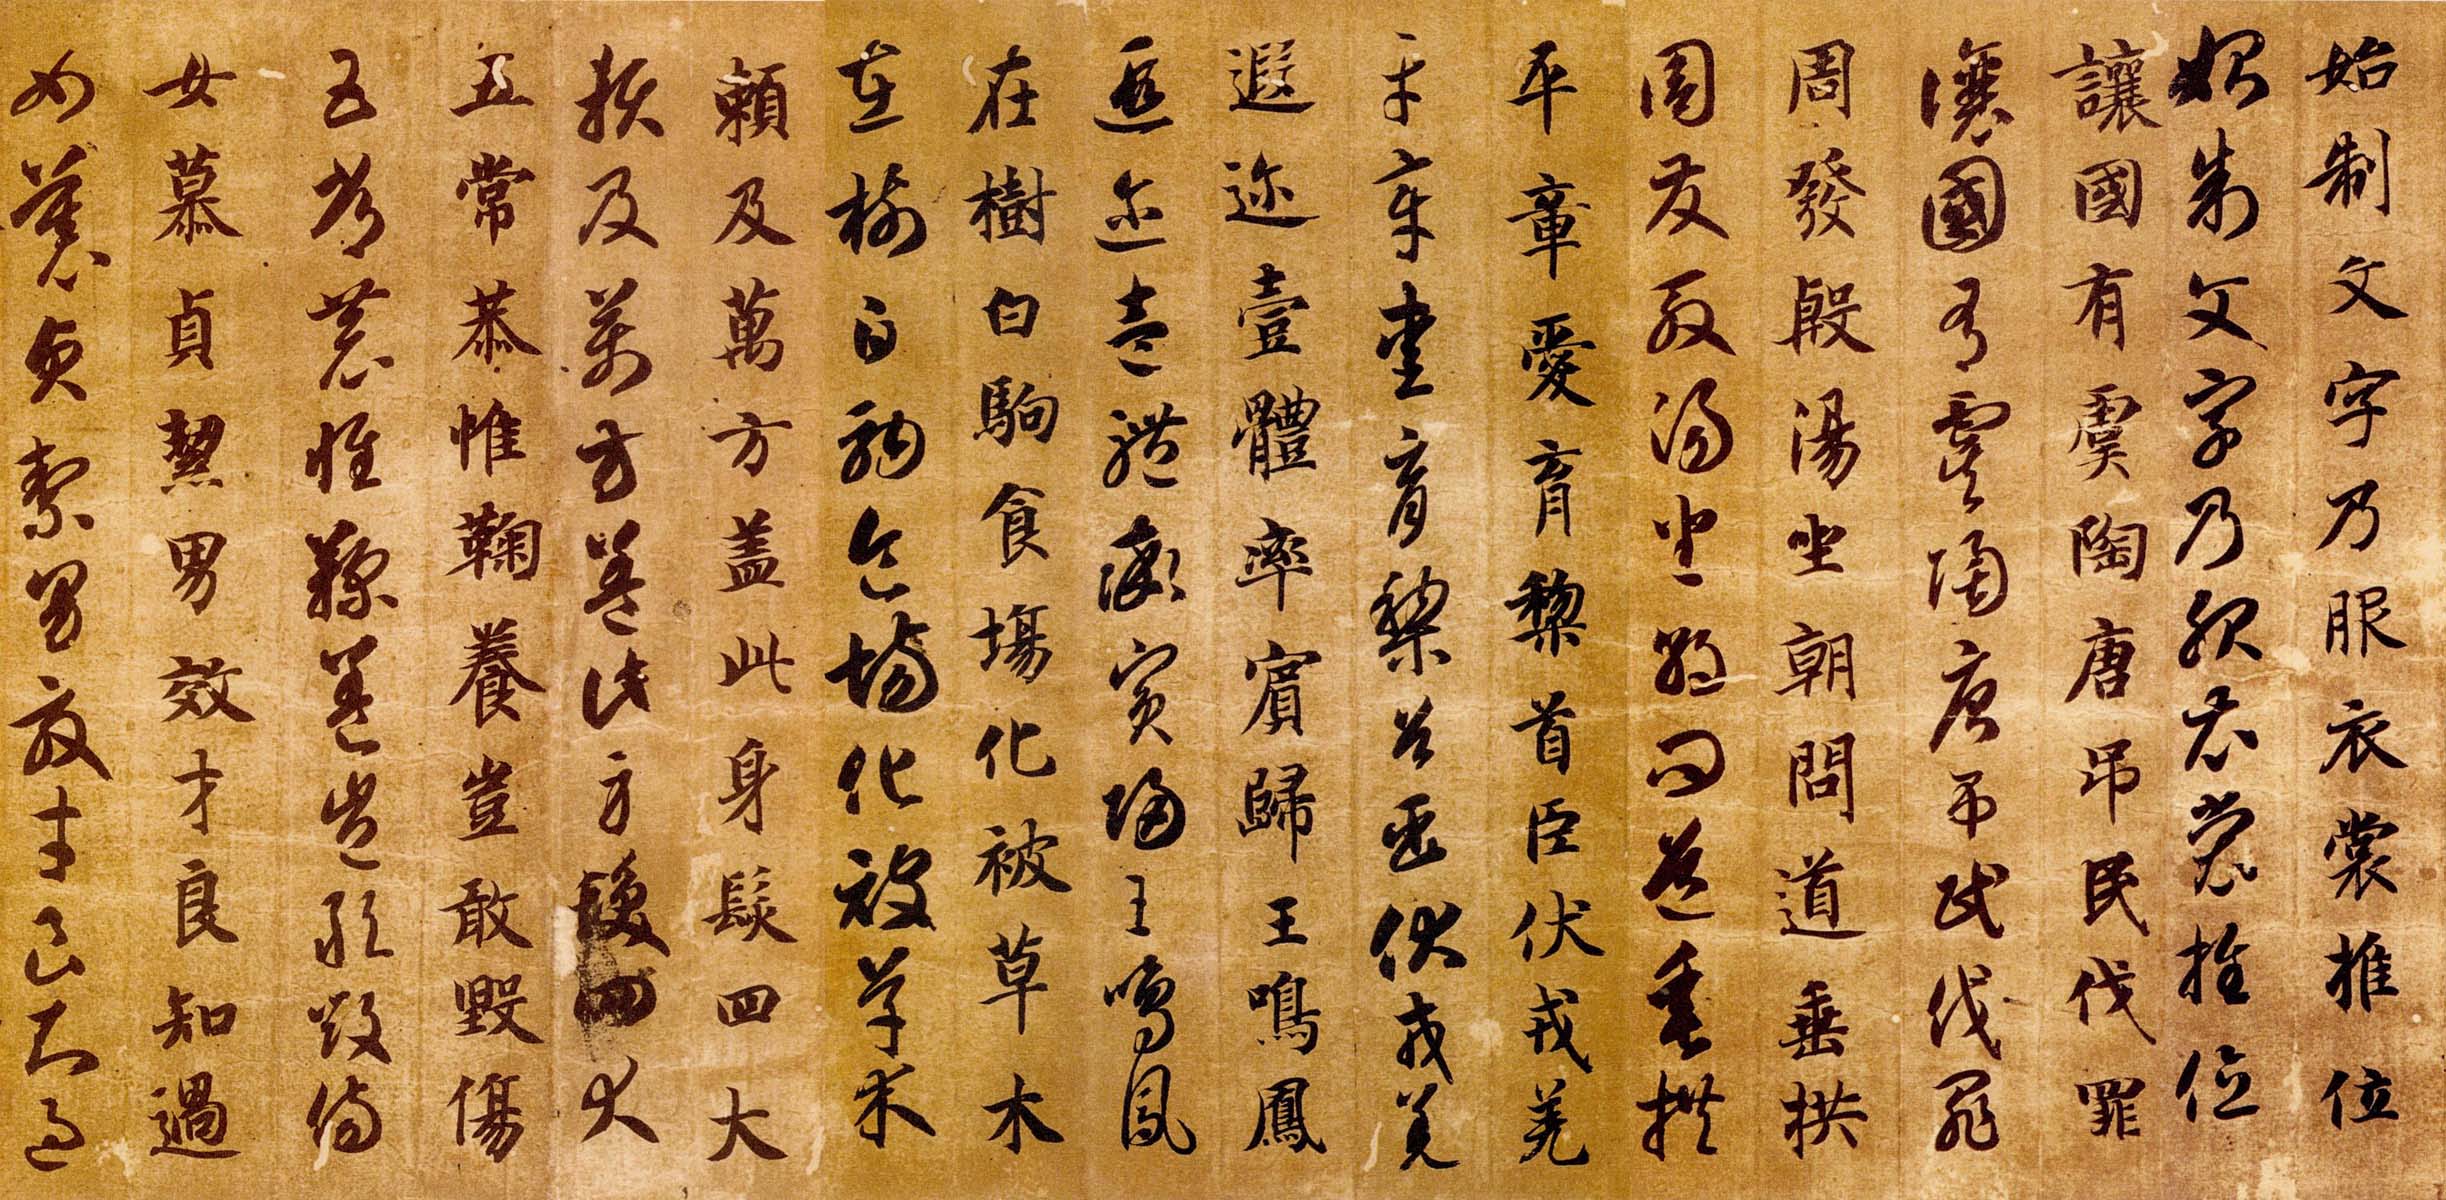 始制文字乃服衣裳推位
始制文字乃服衣裳推位
讓國有虞陶唐吊民伐罪
讓國有虞陶唐吊民伐罪
周發殷湯坐朝問道垂拱
周發殷湯坐朝問道垂拱
平章愛育黎首臣伏戎羌
平章愛育黎首臣伏戎羌
遐迩壹體率賓歸王鳴鳳
遐迩壹體率賓歸王鳴鳳
在樹白駒食塲化被草木
在樹白駒食場化被草木
賴及萬方盖此身髮四大
賴及萬方盖此身髮四大
五常恭惟鞠養豈敢毀傷
五常恭惟鞠養豈敢毀傷
女慕貞絜男效才良知過
女慕貞絜男效才良知過